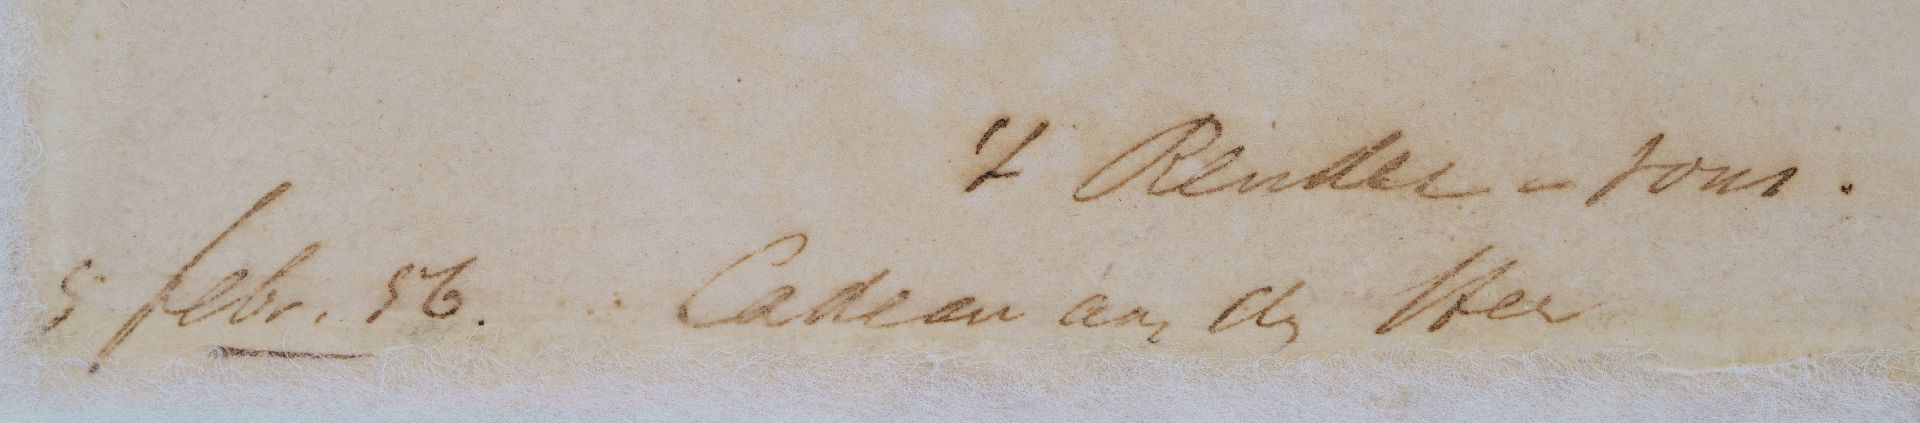 't Render - vous.
5 febr. 56. Cadeau aan den Heer